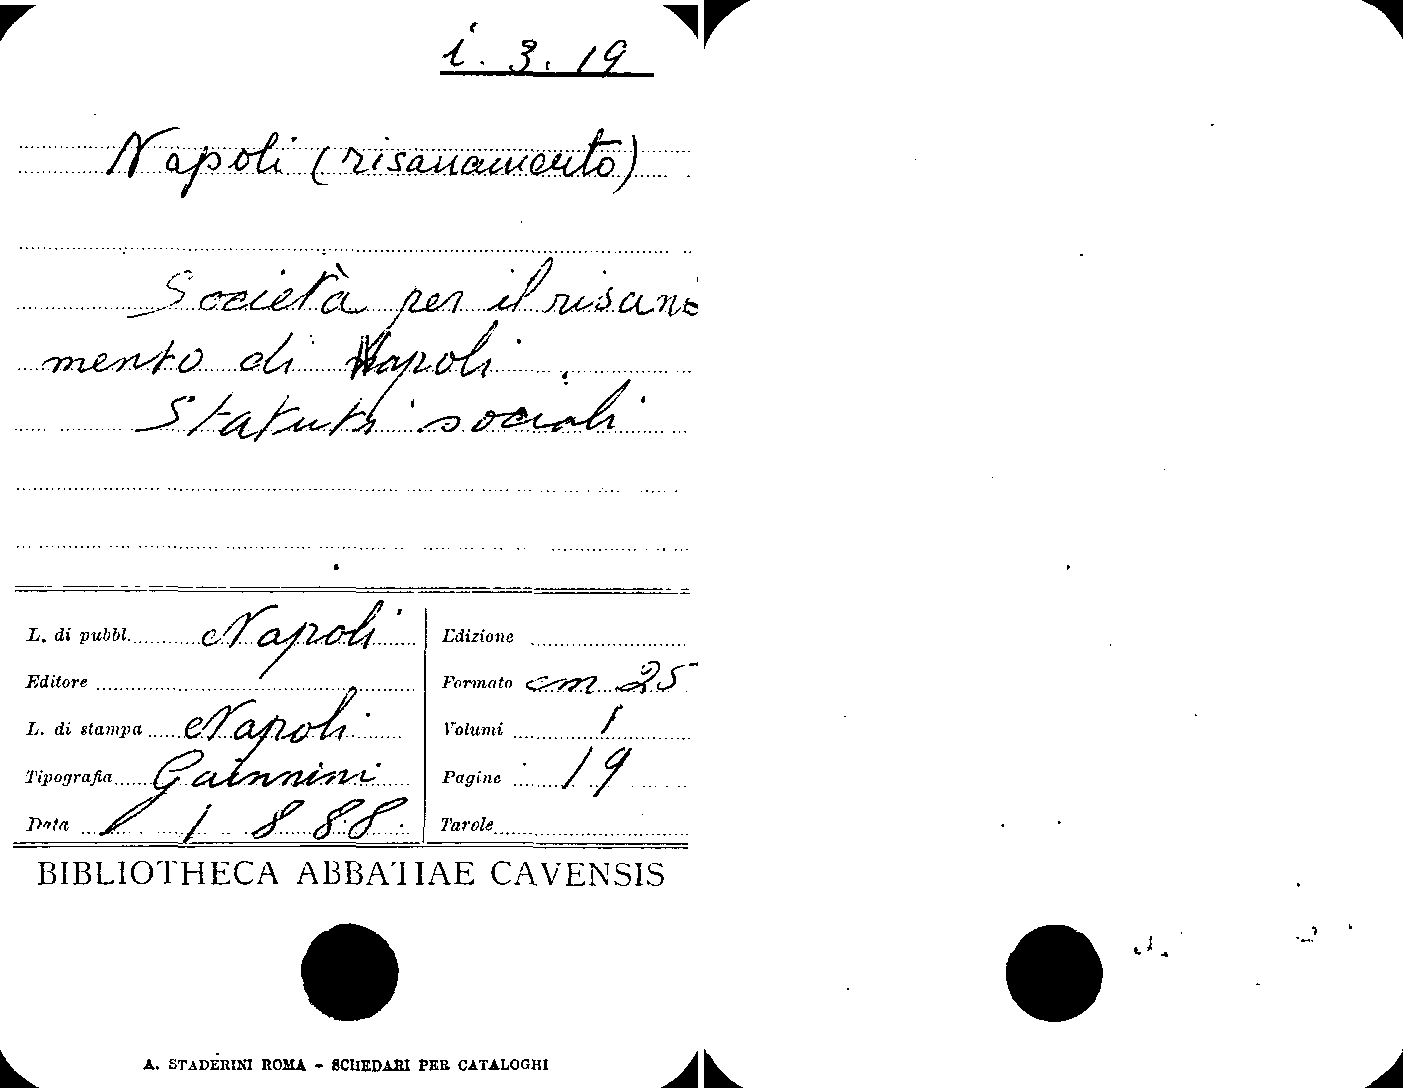 i. 3. 19
Napoli (risanamento)
Società per il risana
mento di Napoli.
Statuti sociali
L. di pubbl. Napoli
Editore
L. di stampa Napoli
Tipografia Gainnini
Data 1888.
Edizione
Formato cm 25
Volumi 1
Pagine 19
Tavole
BIBLIOTHECA ABBATIAE CAVENSIS
A. STADERINI ROMA - SCHEDARI PER CATALOGHI